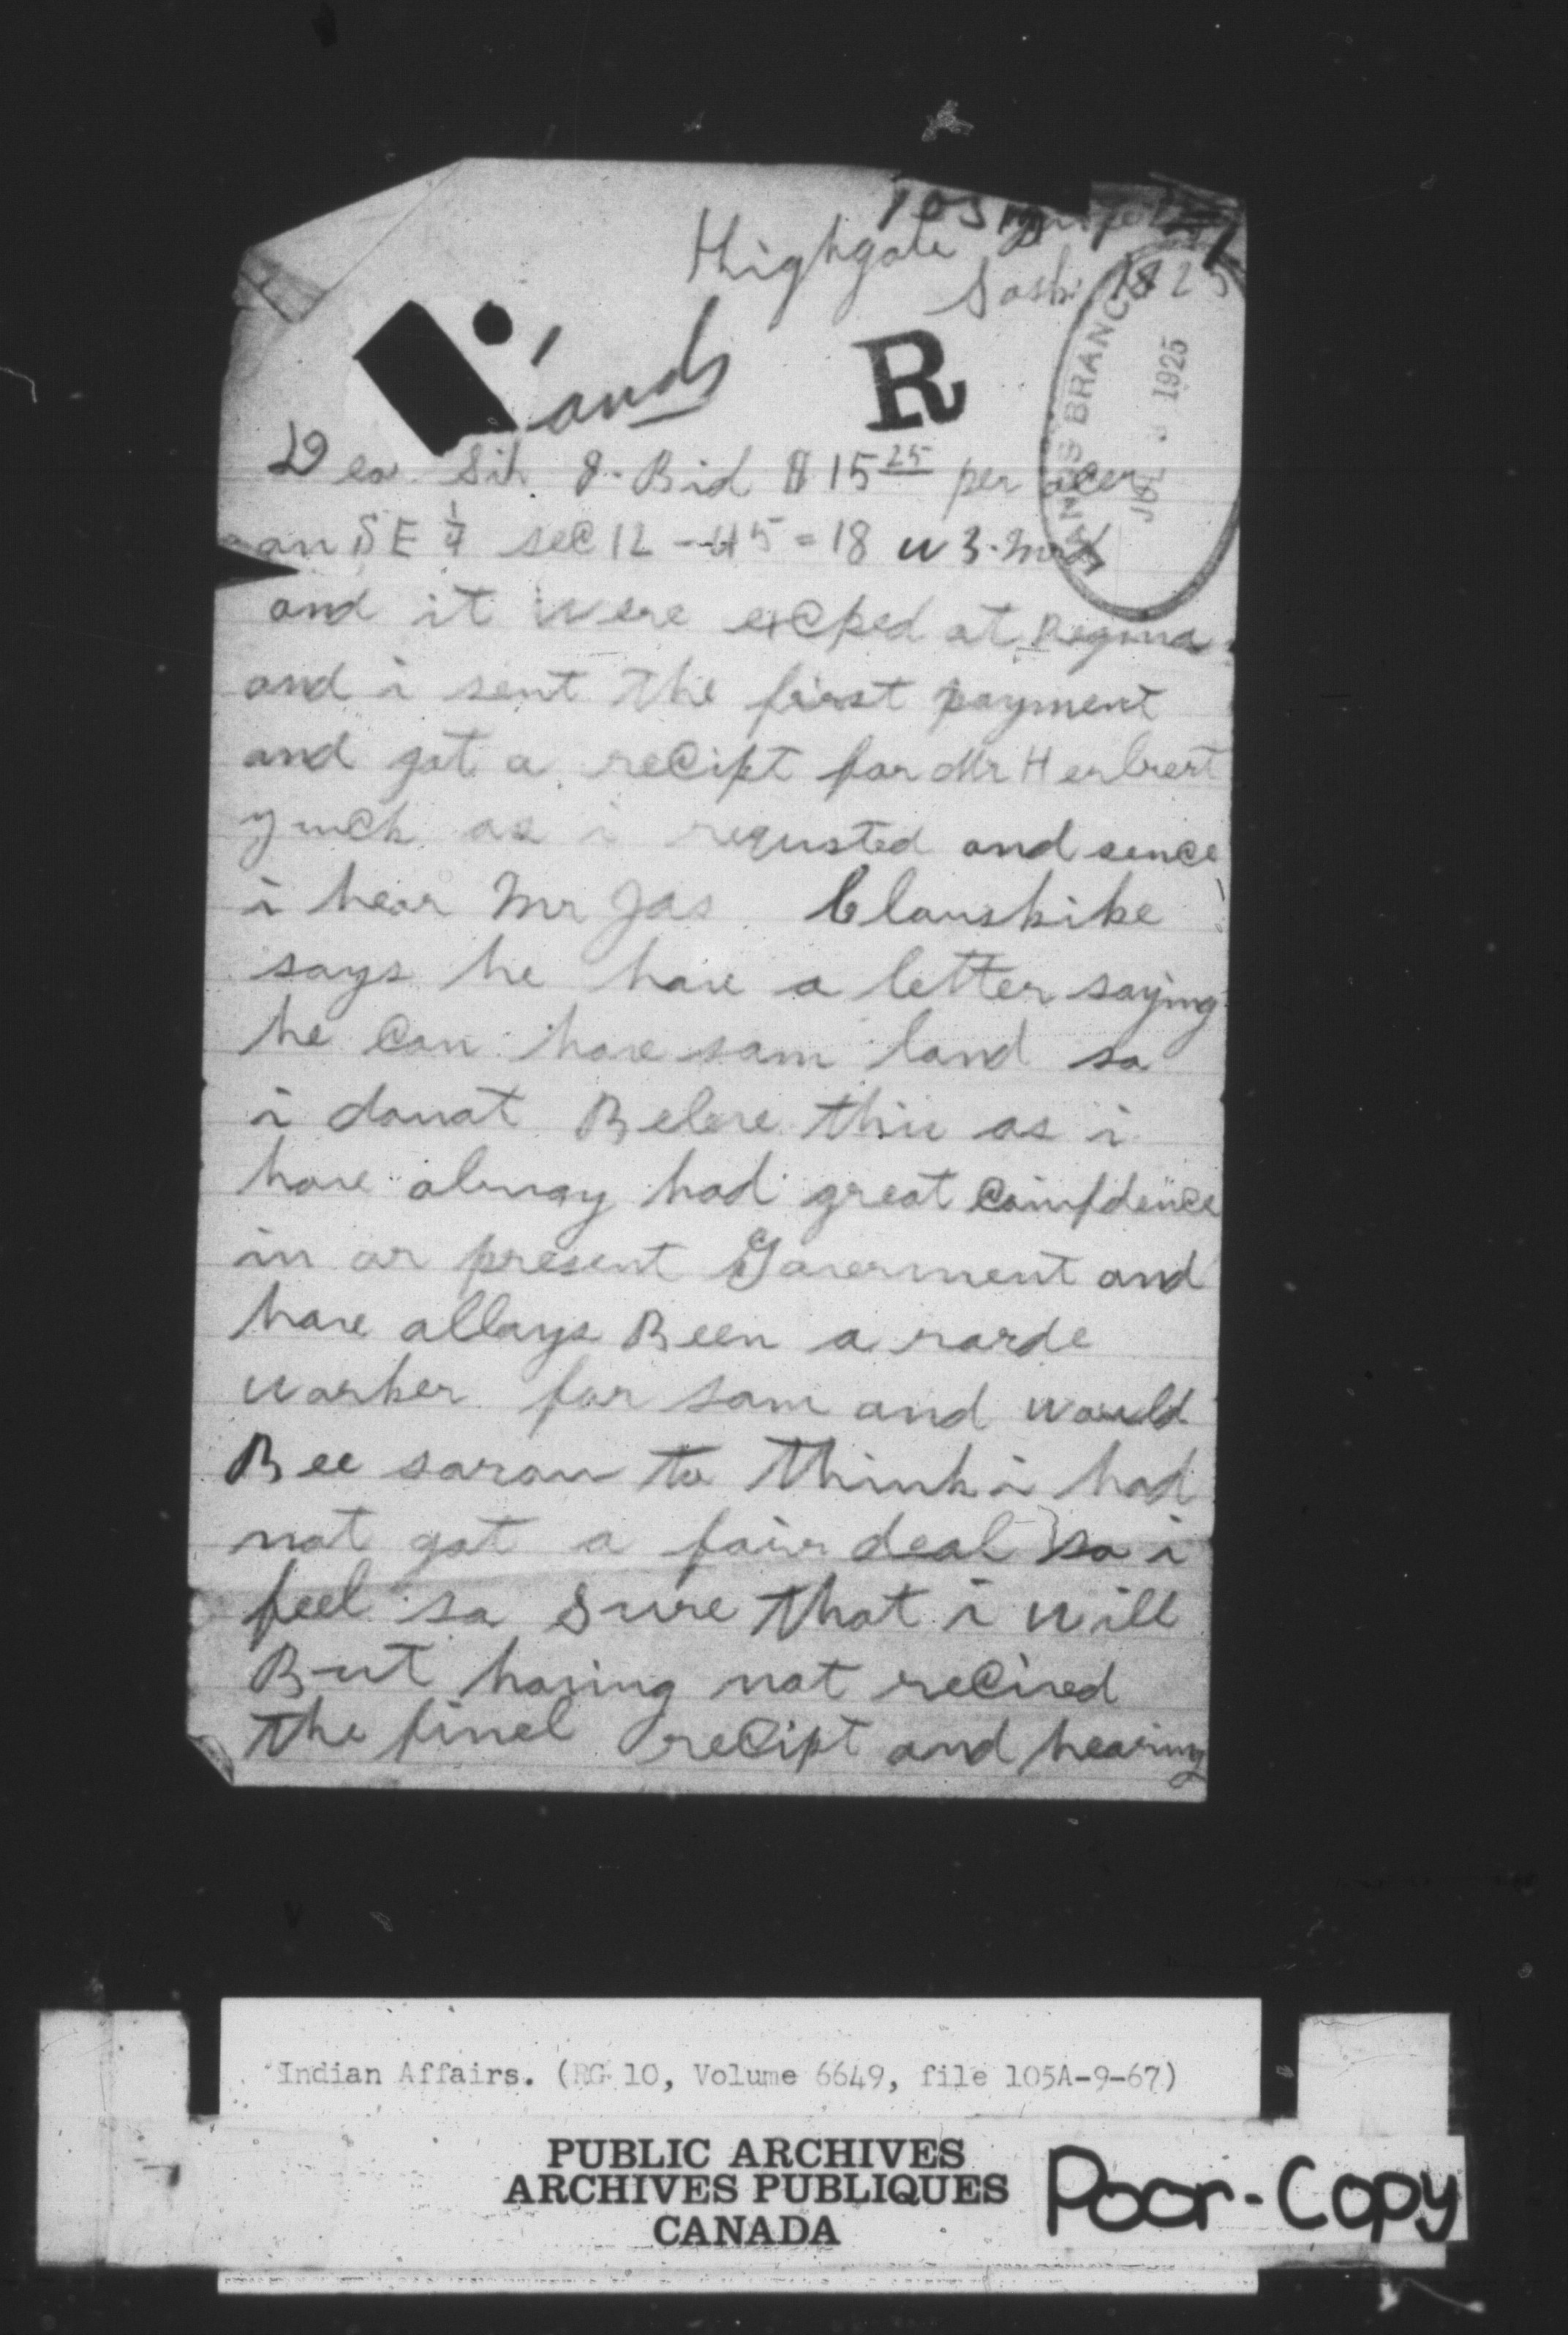 Highgate
Sask 1925
Lands
R
LANDS BRANCH
JUL 1925
Dea Sir I Bid $15 25 per acer
on SE 1/4 sec 12 - 45 = 18 w 3. m
and it were excped at Regina
and i sent the first payment
and got a recipt for Mr Herbrert
as i requsted and sence
i hear Mr Jas Clouskike
says he have a letter saying
he Can have sam land so
i donot Beleve this as i
have alway had great Conifdence
in or present Goverment and
have allays Been a harde
worker for sam and would
Bee sarow to think i had
not got a fair deal so i
feel so sure that i will
But having not recived
the finel recipt and hearing
Indian Affairs. (RG 10, Volume 6649, file 105A-9-67)
PUBLIC ARCHIVES
ARCHIVES PUBLIQUES
CANADA
Poor-Copy